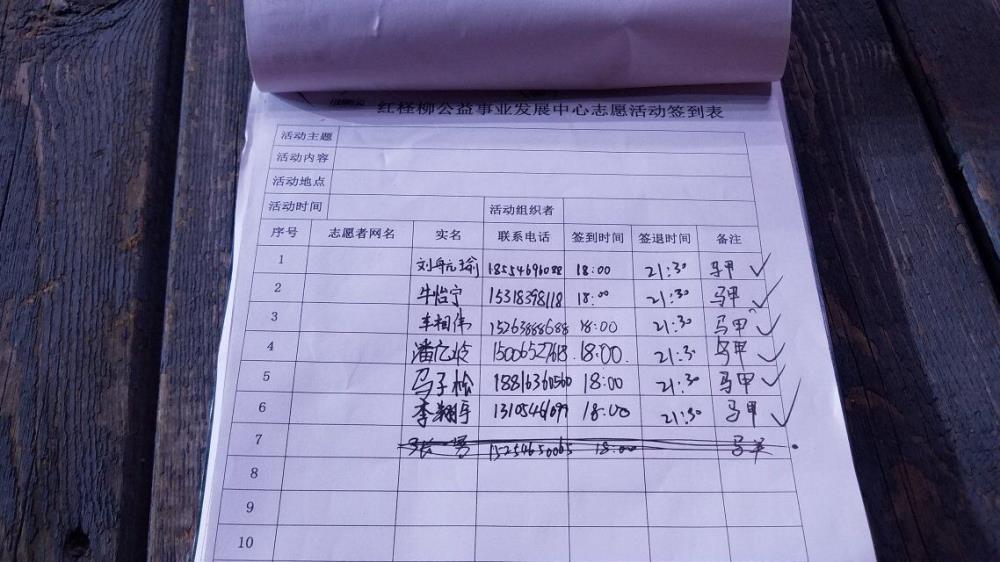 红柽柳公益事业发展中心志愿活动签到表
活动主题
活动内容
活动地点
活动时间 活动组织者
序号 志愿者网名 实名 联系电话 签到时间 签退时间 备注
1 刘舟元瑜 18554696088 18:00 21:30 马甲 ✓
2 牛怡宁 15318398118 18:00 21:30 马甲 ✓
3 车相伟 15263888688 18:00 21:30 马甲 ✓
4 潘广玲 15006527618 18:00 21:30 马甲 ✓
5 马子松 18816360560 18:00 21:30 马甲 ✓
6 李翔宇 13105461099 18:00 21:30 马甲 ✓
7 15254650065 18:00
8
9
10